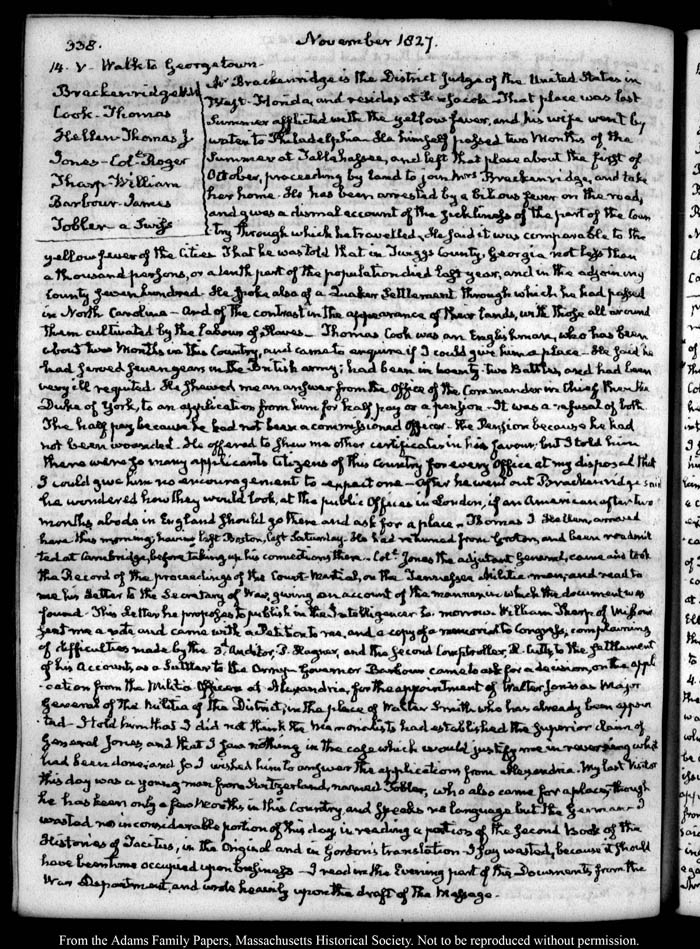 338.
November 1827.
14. V. Walk to Georgetown.
Brackenridge H. M
Cook. Thomas
Hellen Thomas J.
Jones. Col.l Roger
Tharp. William
Barbour. James
Tobler a Swiss
Mr Brackenridge is the District Judge of the United States in
West-Florida, and resides at Pensacola. That place was last
Summer afflicted with the yellow fever, and his wife went by
water to Philadelphia. He himself passed two Months of the
Summer at Tallahassee, and left that place about the first of
October, proceeding by land to join Mrs Brackenridge, and take
her home. He has been arrested by a bilious fever on the road,
and gives a dismal account of the sickliness of the part of the Coun
try through which he travelled. He said it was comparable to the
yellow fever of the Cities. That he was told that in Twiggs County, Georgia not less than
a thousand persons, or a tenth part of the population died last year, and in the adjoining
County seven hundred. He spoke also of a Quaker Settlement through which he had passed
in North Carolina — And of the contrast in the appearance of their lands, with those all around
them cultivated by the labour of slaves — Thomas Cook was an Englishman, who has been
about two Months in this Country, and came to enquire if I could give him a place — He said he
had served seven years in the British army; had been in twenty two Battles, and had been
very ill requited. He shewed me an answer from the Office of the Commander in Chief then the
Duke of York, to an application from him for half pay or a pension. It was a refusal of both
The half pay because he had not been a commissioned Officer. The Pension because he had
not been wounded. He offered to shew me other certificates in his favour; but I told him
there were so many applicants Citizens of this Country for every Office at my disposal that
I could give him no encouragement to expect one — After he went out Brackenridge said
he wondered how they would look, at the public Offices in London, if an American after two
months abode in England should go there and ask for a place. Thomas J. Hellen, arrived
here this morning; having left Boston, last Saturday. He had returned from Groton, and been readmit
ted at Cambridge, before taking up his connections there. Col.l Jones the adjutant General, came and took
the Record of the proceedings of the Court Martial, on the Tennessee Militia men; and read to
me his Letter to the Secretary of War, giving an account of the manner, in which the document was
found. This Letter he proposes to publish in the Intelligencer to morrow. William Tharp of
sent me a note and came with a Petition to me, and a copy of a memorial to Congress, complaining
of difficulties made by the 3. Auditor, P. Hagner, and the Second Comptroller, R. Cutts to the settlement
of his Account, as a Suttler to the Army. Governor Barbour came to ask for a decision, on the appli
-cation from the Militia Officers at Alexandria, for the appointment of Walter Jones as Major
General of the Militia of the District, in the place of Walter Smith who has already been appoin
-ted — I told him that I did not think the Memorialists had established the superior claim of
General Jones, and that I saw nothing in the case which would justify me in reversing what
had been done; and so I wished him to answer the applications from Alexandria. My last Visitor
this day was a young man from Switzerland, named Tobler, who also came for a place; though
he has been only a few Months in this Country, and speaks no language but the German — I
wasted no inconsiderable portion of this day, in reading a portion of the second book of the
Histories of Tacitus, in the Original and in Gordon's translation — I say wasted, because it should
have been time occupied upon business — I read in the Evening part of the Documents from the
War Department, and wrote heavily upon the draft of the Message.
From the Adams Family Papers, Massachusetts Historical Society. Not to be reproduced without permission.